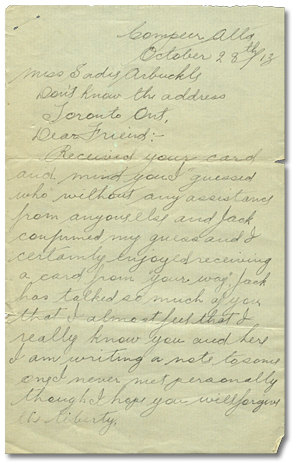 Compeer Alta
October 28th/13
Miss Sadie Arbuckle
Don't know the address
Toronto Ont,
Dear Friend:-
Received your card
and mind you I guessed
who without any assistance
from anyone else and Jack
confirmed my guess and I
certainly enjoyed receiving
a card from "your way" Jack
has talked so much of you
that I almost feel that I
really know you and here
I am writing a note to some
one I never met personally
though I hope you will forgive
the liberty,